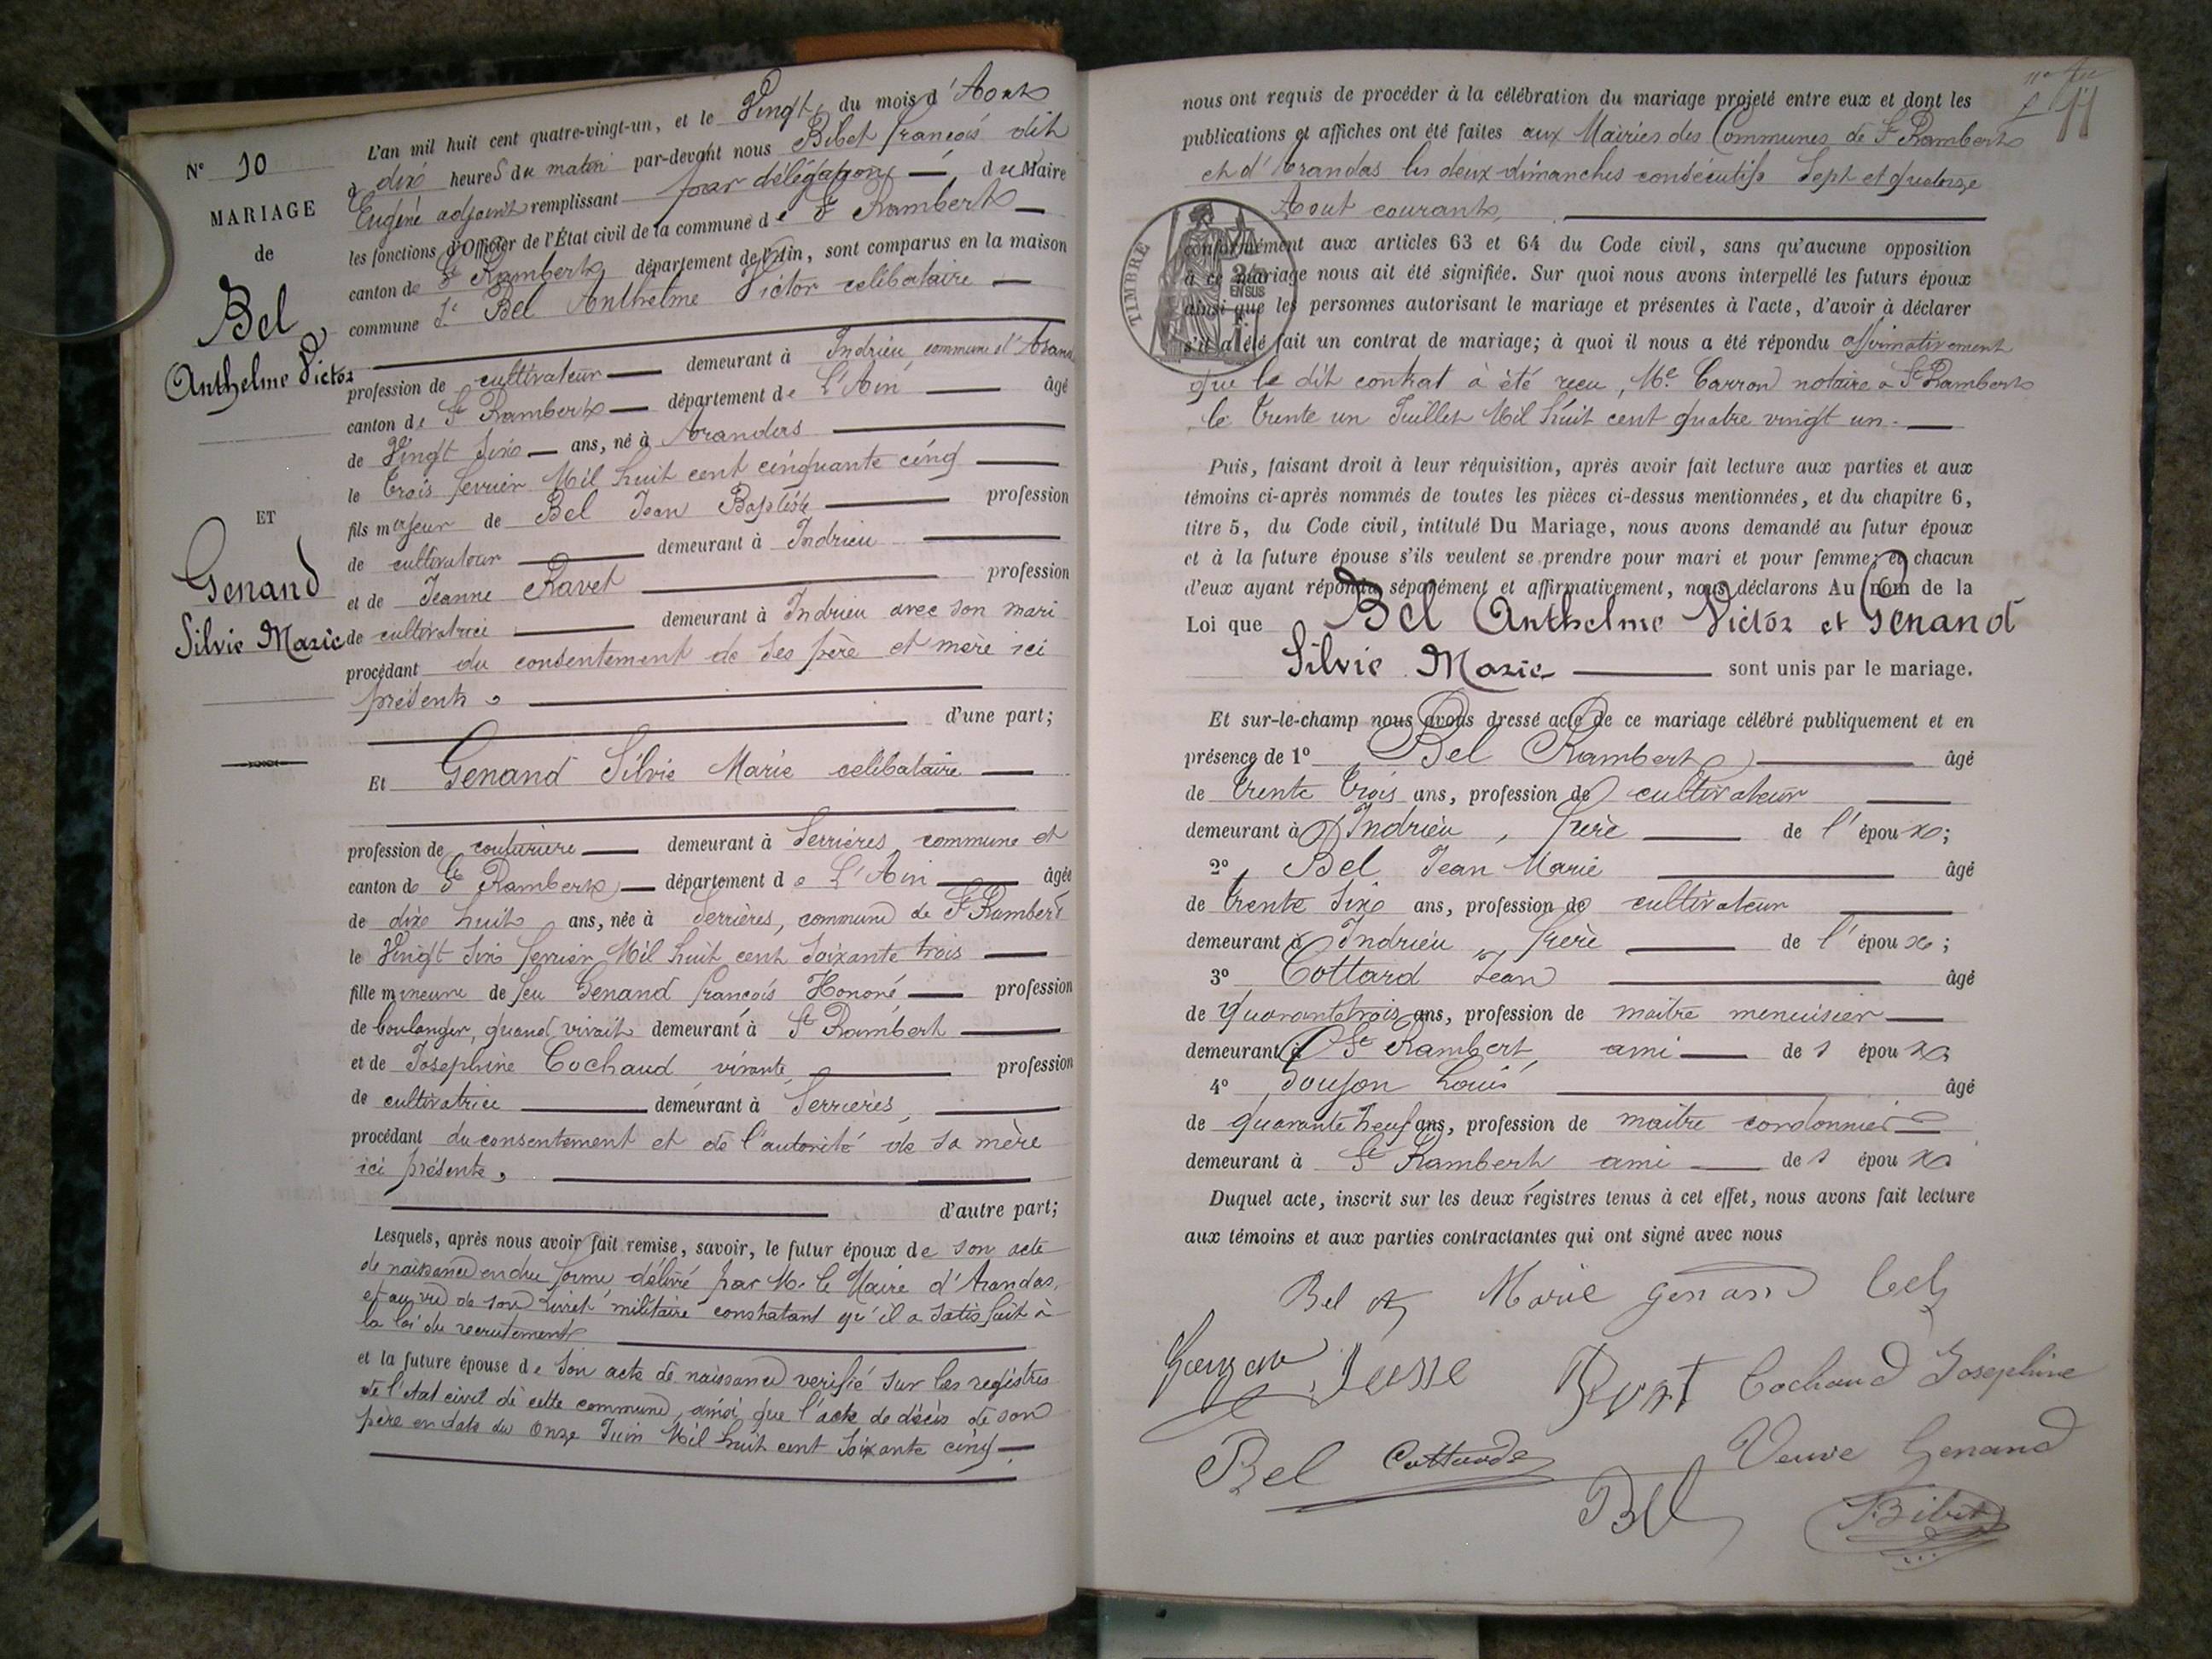 N° 10
MARIAGE
de
Bel
Anthelme Victor
ET
Genand
Silvie Marie
L'an mil huit cent quatre-vingt-un, et le Vingt, du mois d'Aout
à dix heures du matin par-devant nous Bibet François dit
Eugéne adjoint remplissant par délégation du Maire
les fonctions d'Officier de l'État civil de la commune de St Rambert
canton de St Rambert département de l'Ain, sont comparus en la maison
commune 1° Bel Anthelme Victor celibataire
profession de cultivateur demeurant à Indrieu commune d'Arandas
canton de St Rambert département de L'Ain âgé
de Vingt six ans, né à Arandas
le trois fevrier Mil huit cent cinquante cinq
fils majeur de Bel Jean Baptiste profession
de cultivateur demeurant à Indrieu
et de Jeanne Ravet profession
de cultivatrice demeurant à Indrieu avec son mari
procédant du consentement de ses père et mère ici
présents,
d'une part;
Et Genand Silvie Marie celibataire
profession de couturière demeurant à Serrières, commune et
canton de St Rambert département de L'Ain âgée
de dix huit ans, née à Serrières, commune de St Rambert
le Vingt six fevrier Mil huit cent soixante trois
fille mineure de feu Genand François Honoré profession
de boulanger, quand vivait demeurant à St Rambert
et de Josephine Cochaud vivante, profession
de cultivatrice demeurant à Serrieres,
procédant du consentement et de l'autorité de sa mère
ici présente,
d'autre part;
Lesquels, après nous avoir fait remise, savoir, le futur époux de son acte
de naissance en due forme délivré par M. le Maire d'Arandas,
et au vu de son livret militaire constatant qu'il a satisfait à
la loi du recrutement
et la future épouse de son acte de naissance verifié sur les registres
de l'etat civil de cette commune, ainsi que l'acte de décès de son
père en date du Onze Juin Mil huit cent soixante cinq
nous ont requis de procéder à la célébration du mariage projeté entre eux et dont les
publications et affiches ont été faites aux Mairies des Communes de St Rambert
et d'Arandas les deux dimanches consécutifs Sept et quatorze
Aout courant,
TIMBRE
EN SUS
conformément aux articles 63 et 64 du Code civil, sans qu'aucune opposition
à ce mariage nous ait été signifiée. Sur quoi nous avons interpellé les futurs époux
ainsi que les personnes autorisant le mariage et présentes à l'acte, d'avoir à déclarer
s'il a été fait un contrat de mariage; à quoi il nous a été répondu affirmativement
que le dit contrat à été recu, Me. Carron notaire à St Rambert
le trente un Juillet Mil huit cent quatre vingt un.
Puis, faisant droit à leur réquisition, après avoir fait lecture aux parties et aux
témoins ci-après nommés de toutes les pièces ci-dessus mentionnées, et du chapitre 6,
titre 5, du Code civil, intitulé Du Mariage, nous avons demandé au futur époux
et à la future épouse s'ils veulent se prendre pour mari et pour femme; et chacun
d'eux ayant répondu séparément et affirmativement, nous déclarons Au nom de la
Loi que Bel Anthelme Victor et Genand
Silvie Marie sont unis par le mariage.
Et sur-le-champ nous avons dressé acte de ce mariage célébré publiquement et en
présence de 1° Bel Rambert âgé
de trente trois ans, profession de cultivateur
demeurant à Indrieu, frère de l'époux;
2° Bel Jean Marie âgé
de trente six ans, profession de cultivateur
demeurant à Indrieu, frere de l'époux;
3° Cottard Jean âgé
de quarante trois ans, profession de maitre menuisier
demeurant à St Rambert ami de s époux
4° Goujon Louis âgé
de quarante neuf ans, profession de maitre cordonnier
demeurant à St Rambert ami de s époux
Duquel acte, inscrit sur les deux régistres tenus à cet effet, nous avons fait lecture
aux témoins et aux parties contractantes qui ont signé avec nous
Bel Marie genand bel
Cochaud Josephine
Bel Cottard Veuve Genand
Bel Bibet